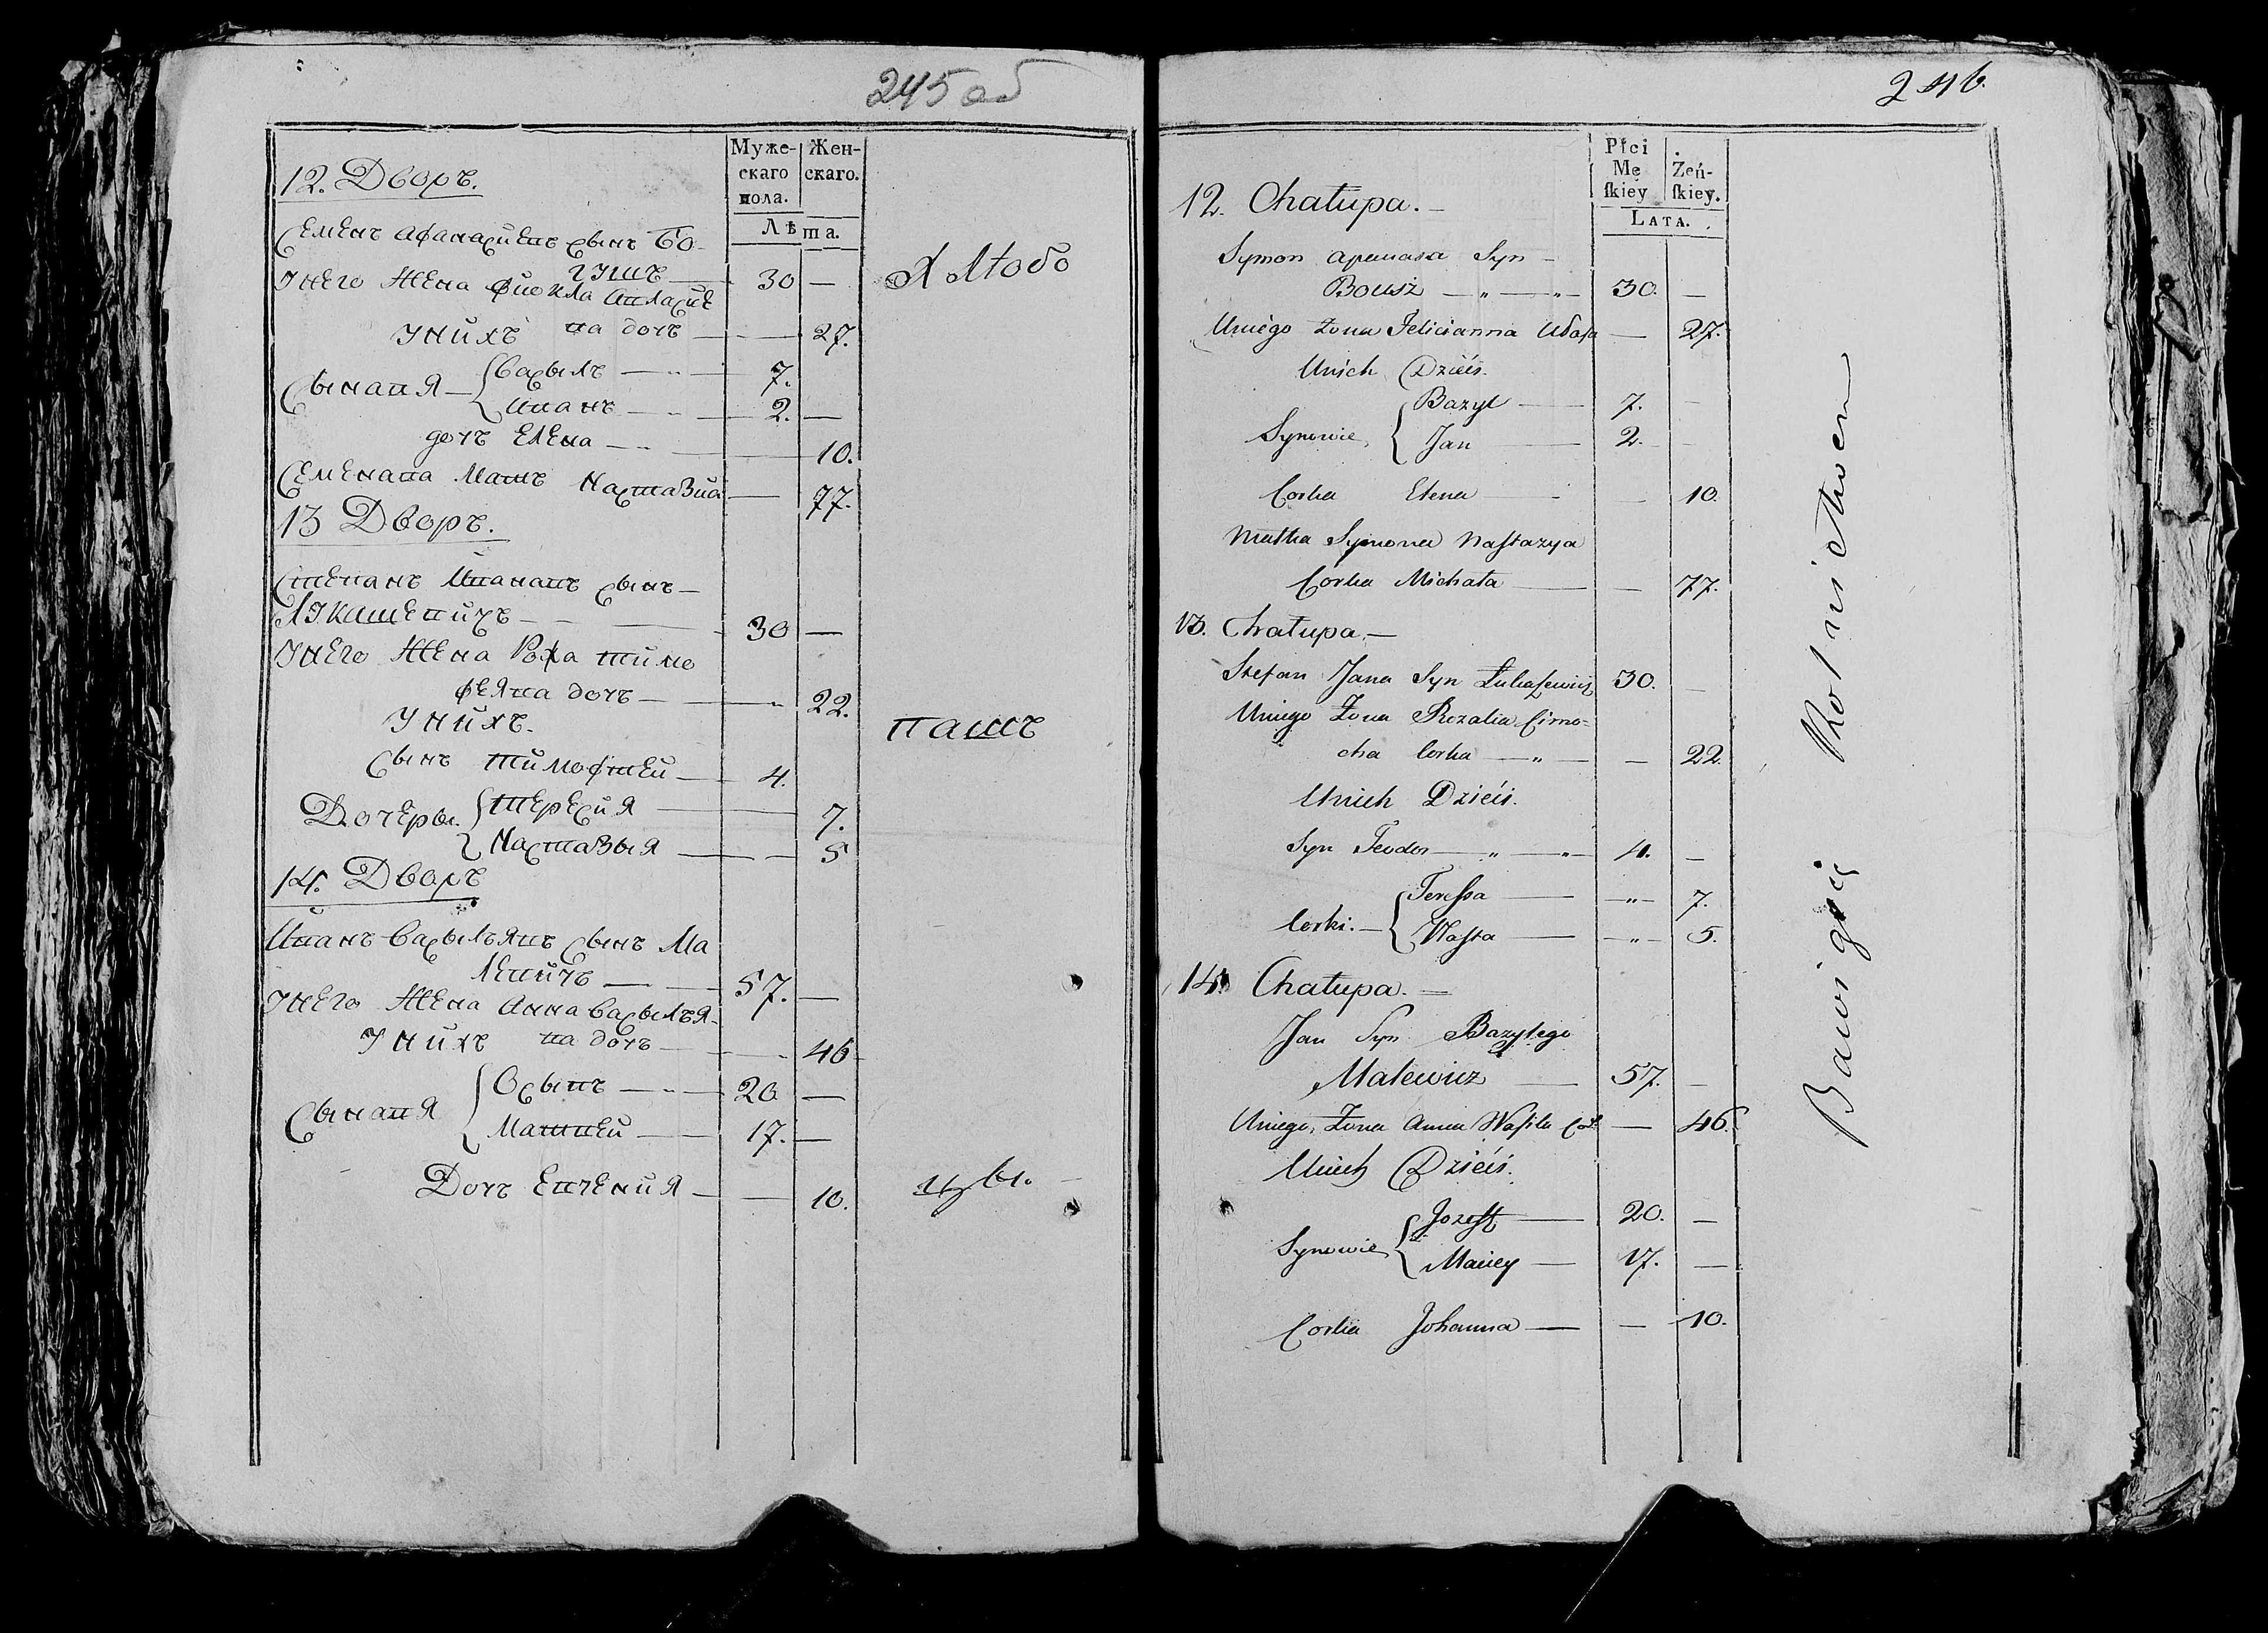 245 об
Муже-
скаго
пола.
Жен-
скаго.
Лѣта.
12. Дворъ.
Семенъ Афанасиевъ сынъ Бо-
гушъ 30 —
Унего жена Фиокла Авласие
ва дочъ — 27.
Унихъ
Сыновя { Васыль 7.
Иванъ 2. —
дочъ Елена 10.
Семенава Мать Настазиа — 77.
13 Дворъ.
Степанъ Ивановъ сынъ —
Лукашевичъ — 30 —
Унего жена Роза Тимо
феява дочъ — 22.
Унихъ.
Сынъ Тимофтей — 4.
Дочеры { Тересия — 7.
Настазыя — 5
14. Дворъ
Иванъ Васыльявъ сынъ Ма
левичъ — 57. —
Унего жена Анна Васылья-
ва дочъ — 46
Унихъ
Сынавя { Осыпъ — 20 —
Матвей — 17. —
Дочъ Евгения — 10.
Хлѣбо
паш
цы.
246.
Płci
Mę
ſkiey
Żeń-
ſkiey.
LATA.
12. Chałupa. —
Symon Apanasa Syn —
Bousz — 30. —
Uniego Żona Felicianna — 27.
Unich Dzieci.
Synowie { Bazyl — 7. —
Jan — 2. —
Corka Elena — 10.
Matka Symona Naſtazya
Corka Michała — 77.
13. Chałupa. —
Stefan Jana Syn Łukaſzewicz 30. —
Uniego Żona Rozalia Cimo-
cha Corka — 22.
Unich Dzieci.
Syn Teodor — 4. —
Corki. { Tereſsa — 7.
Naſta — 5.
14. Chałupa. —
Jan Syn Bazylego
Malewicz — 57. —
Uniego Żona Anna Waſila Cor — 46.
Unich Dzieci.
Synowie { Jozeff — 20. —
Maciey — 17. —
Corka Johanna — 10.
Bawi się Rolnictwem